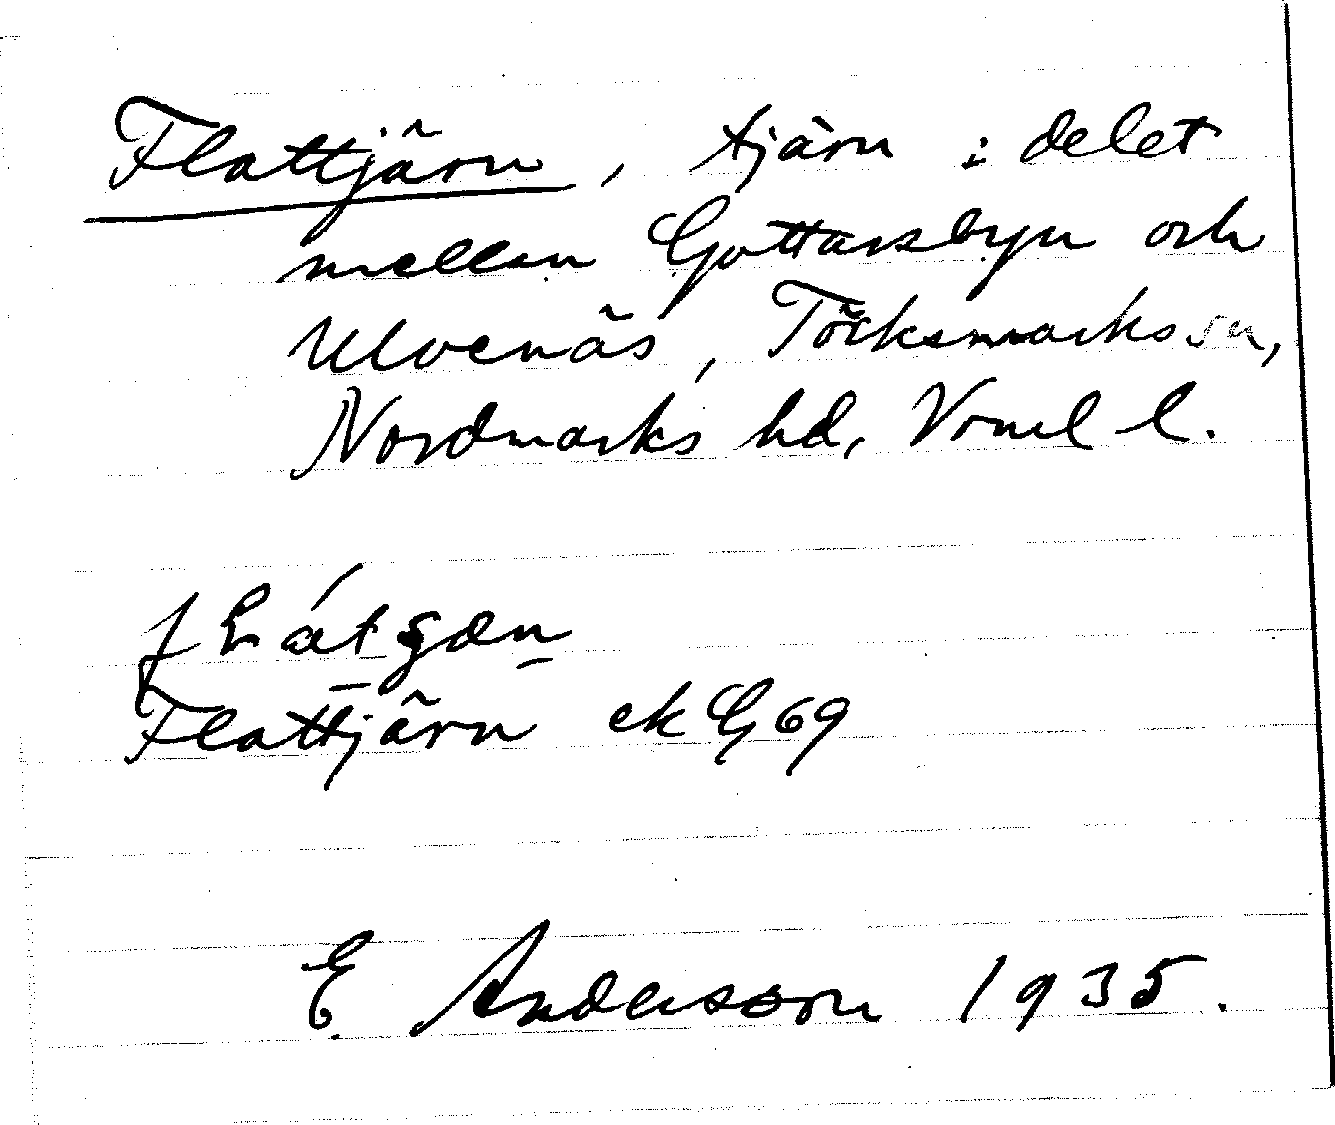 Flattjärn, tjärn i delet
mellan Gottarsbyn och
Ulvenäs, Töcksmarks sn,
Nordmarks hd, Vrml l.
Flattjärn ek G 69
E. Andersson 1935.